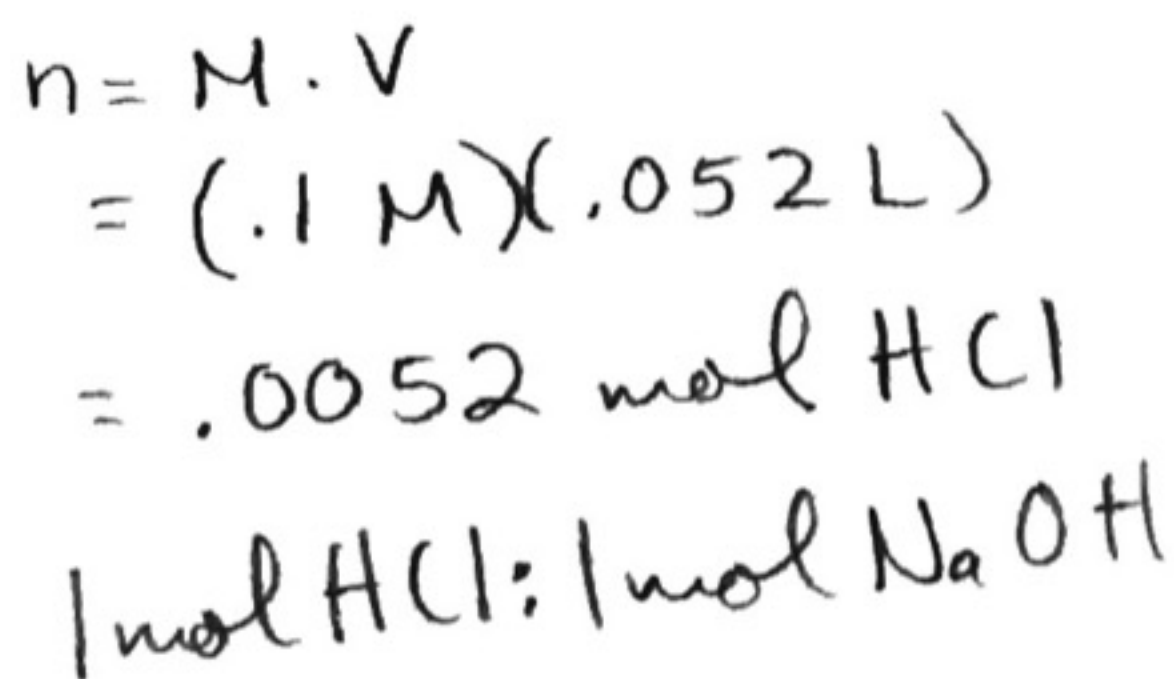 n = M . V
= (.1 M)(.052 L)
= .0052 mol HCl
1 mol HCl : 1 mol NaOH